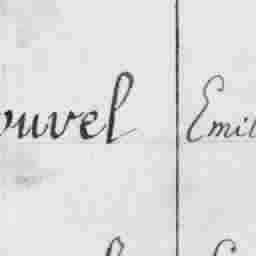 ouvel Emil